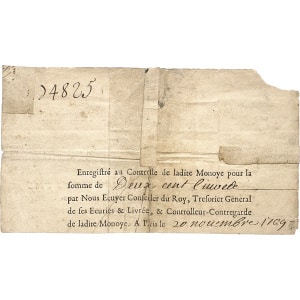 )4825
Enregistré au Controlle de ladite Monoye pour la
somme de Deux cent Livres
par Nous Ecuyer Conseiller du Roy, Tresorier General
de ses Ecuries & Livrée, & Controlleur-Contregarde
de ladite Monoye. A Paris le 20 novembre 1709